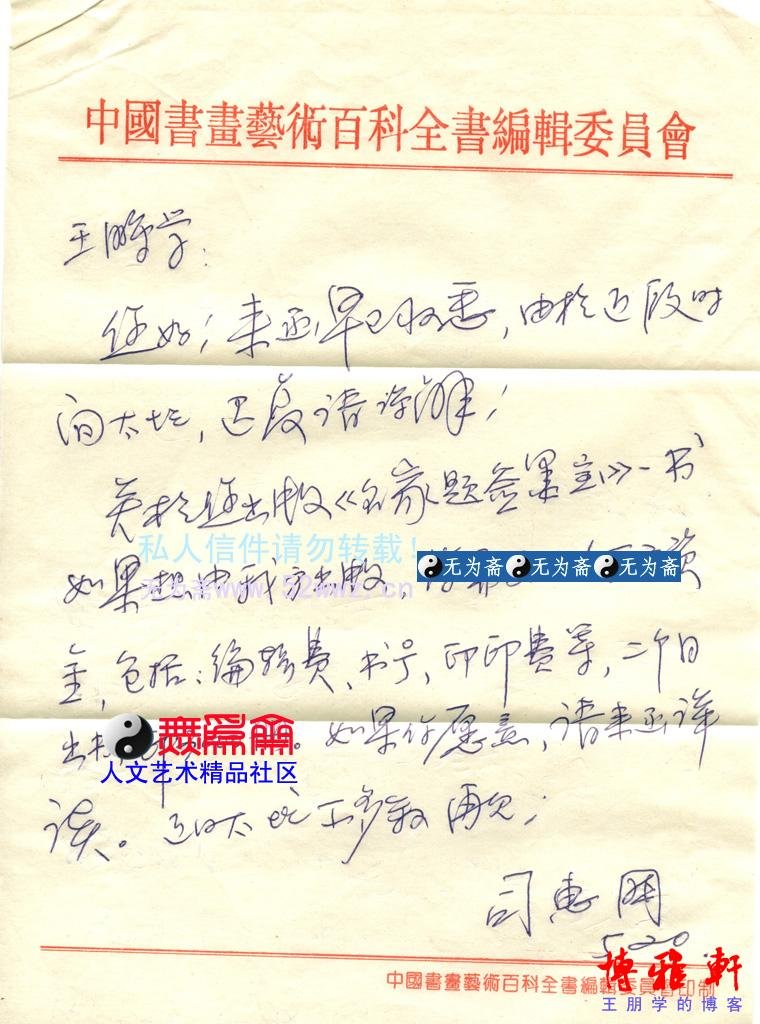 中國書畫藝術百科全書編輯委員會
王鹏学：
您好！来函早已收悉，由於近段时
间太忙，迟复请谅解！
关於您出版《名家题签墨宝》一书
私人信件请勿转载！
如果想由我方出版，
无为斋 无为斋 无为斋
无为斋www.52wwz.cn
金，包括：编辑费、书号、印印费等，二个月
出书，。如果你愿意，请来函详
無為齋
人文艺术精品社区
谈。近日太忙不多叙 再见！
司惠国
5.20
中國書畫藝術百科全書編輯委員會印制
博雅軒
王朋学的博客